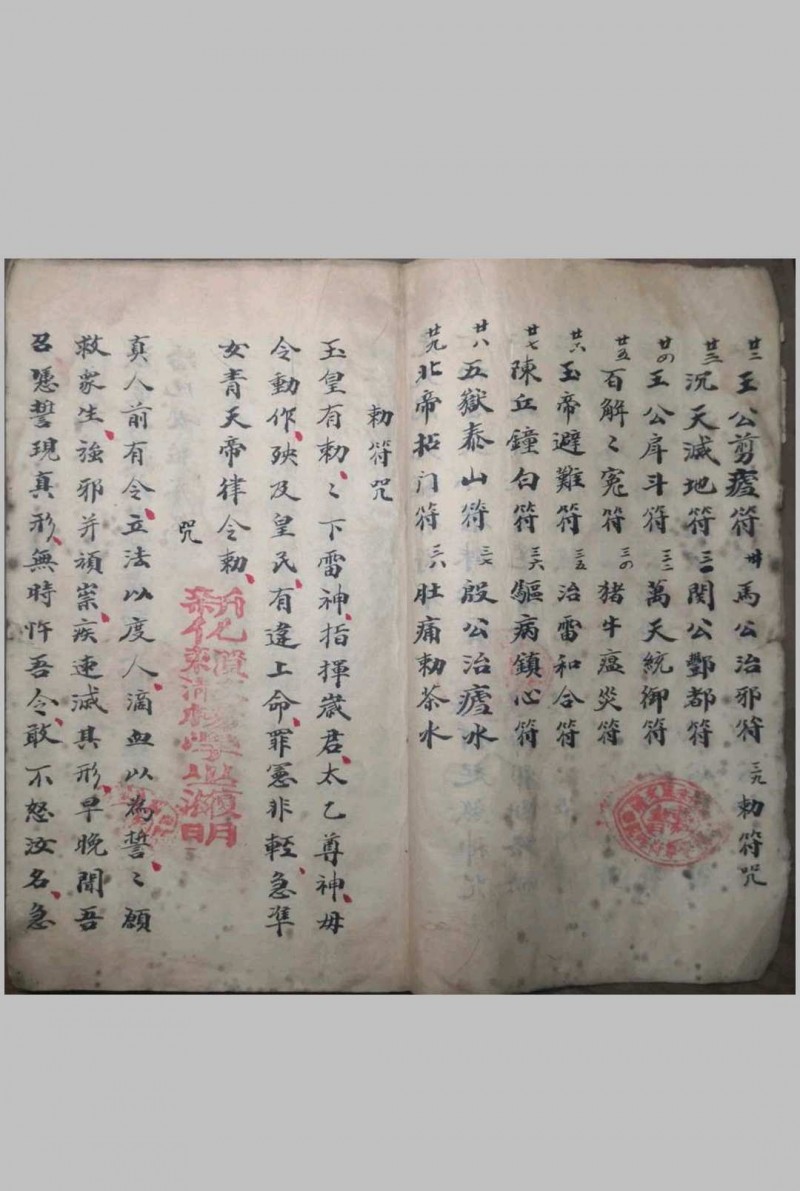 廿二 王公剪瘧符 卅 馬公治邪符 三九 勅符咒
廿三 沉天滅地符 三一 関公酆都符
廿四 王公戽斗符 三二 萬天統御符
廿五 百解〻冤符 三四 猪牛瘟炎符
廿六 玉帝避難符 三五 治雷和合符
廿七 陳丘鐘白符 三六 驅病鎮心符
廿八 五嶽泰山符 三七 殷公治瘧水
廿九 北帝招门符 三八 肚痛勅茶水
勅符咒
玉皇有勅〻下雷神指揮歲君太乙尊神毋
令動作殃及皇民有違上命罪憲非輕急準
女青天帝律令勅
咒
真人前有令立法以度人滴血以為誓〻願
救众生強邪并頑祟疾速滅其形早晚聞吾
召憑誓現真形無時忤吾令敢不怒汝名急